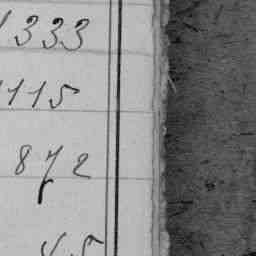 1333
1115
872
45